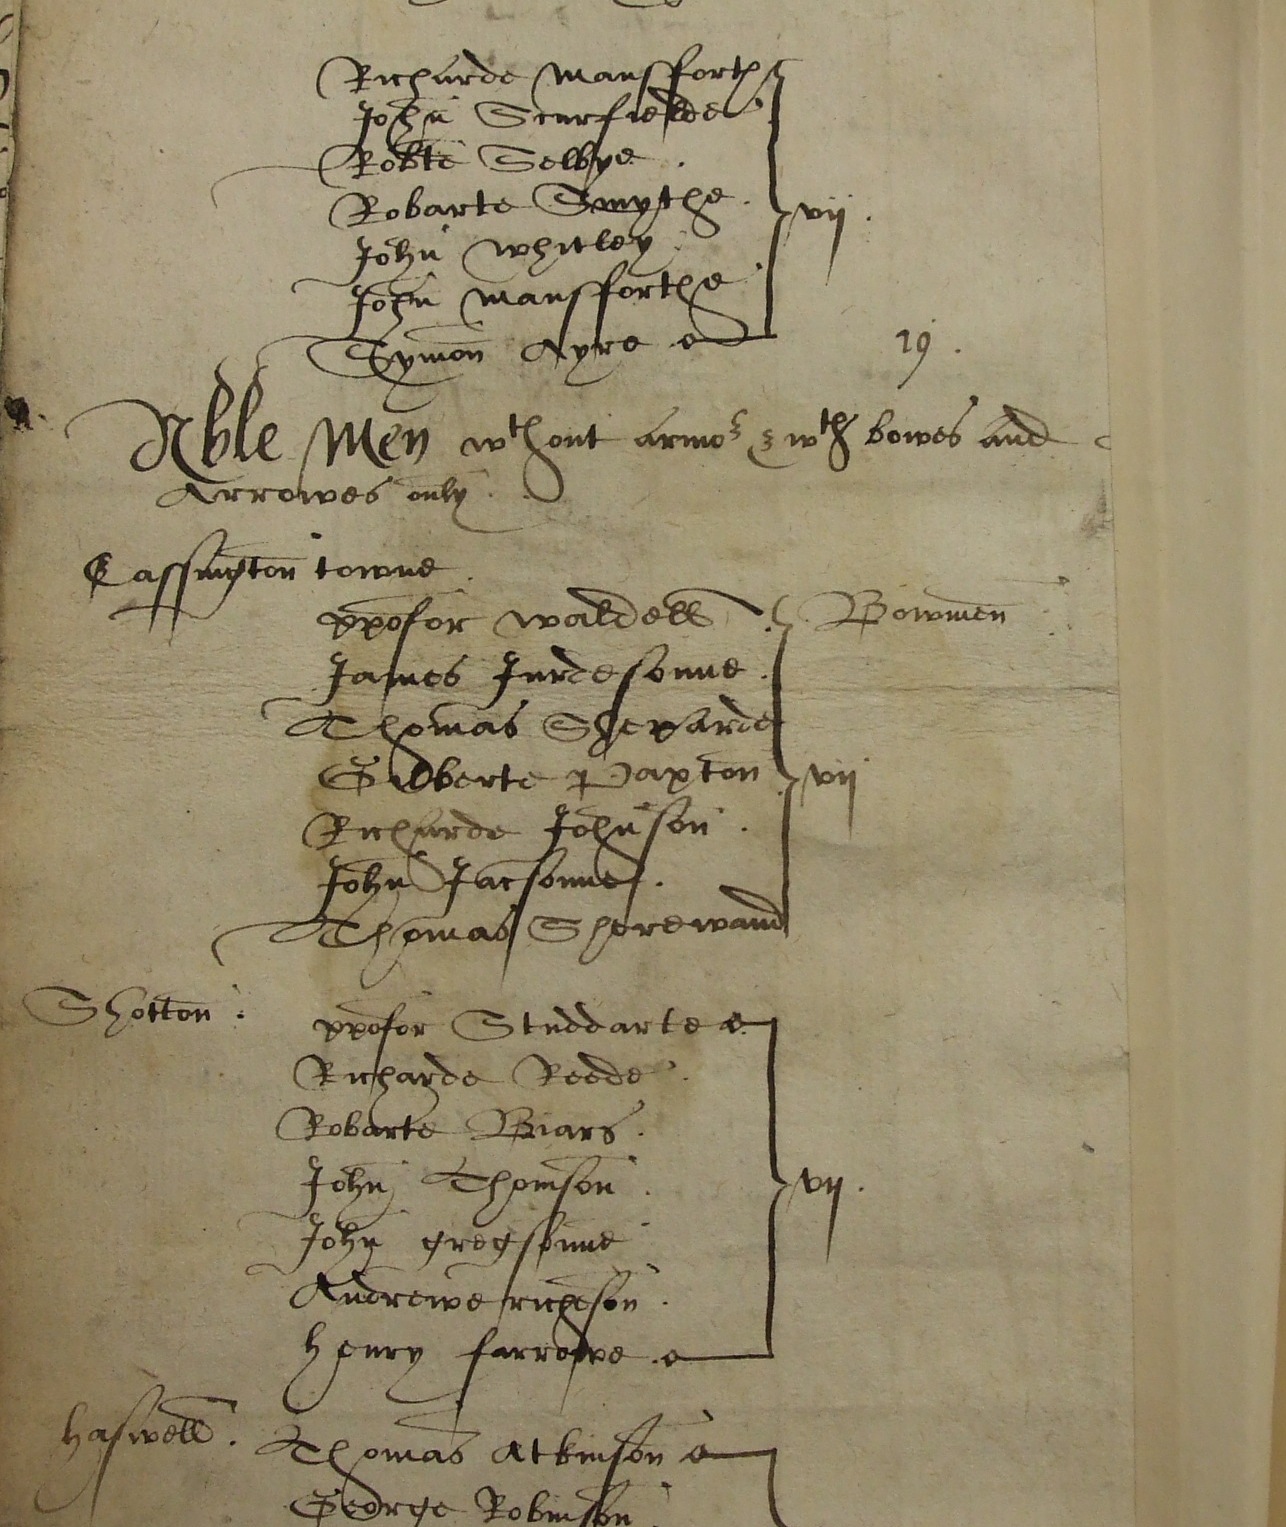 Richarde Mansfforth
John Scurfielde
Robte Selbye
Robarte Smythe
John Whitley
vij
John Mansfforthe
Symon Ayre
19
Able Men wthout armor & wth bowes and
Arrowes only
Cassington towne
xpofor Waldell
Bowmen
James Jurdesonne
Thomas Sheparde
Gilberte Paxton
vij
Richarde Johnson
John Jacsonne
Thomas Sherewand
Shotton
xpofor Studdarte
Richarde Reede
Robarte Biars
John Thomson
vij
John gregsonne
Andrewe richeson
Henry farrowe
Haswell
Thomas Atkinson
George Robinson